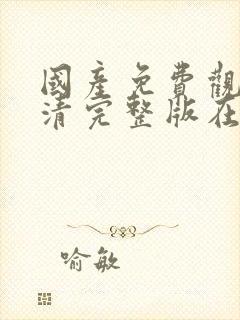 國產免費觀
清完整版在
喻敏